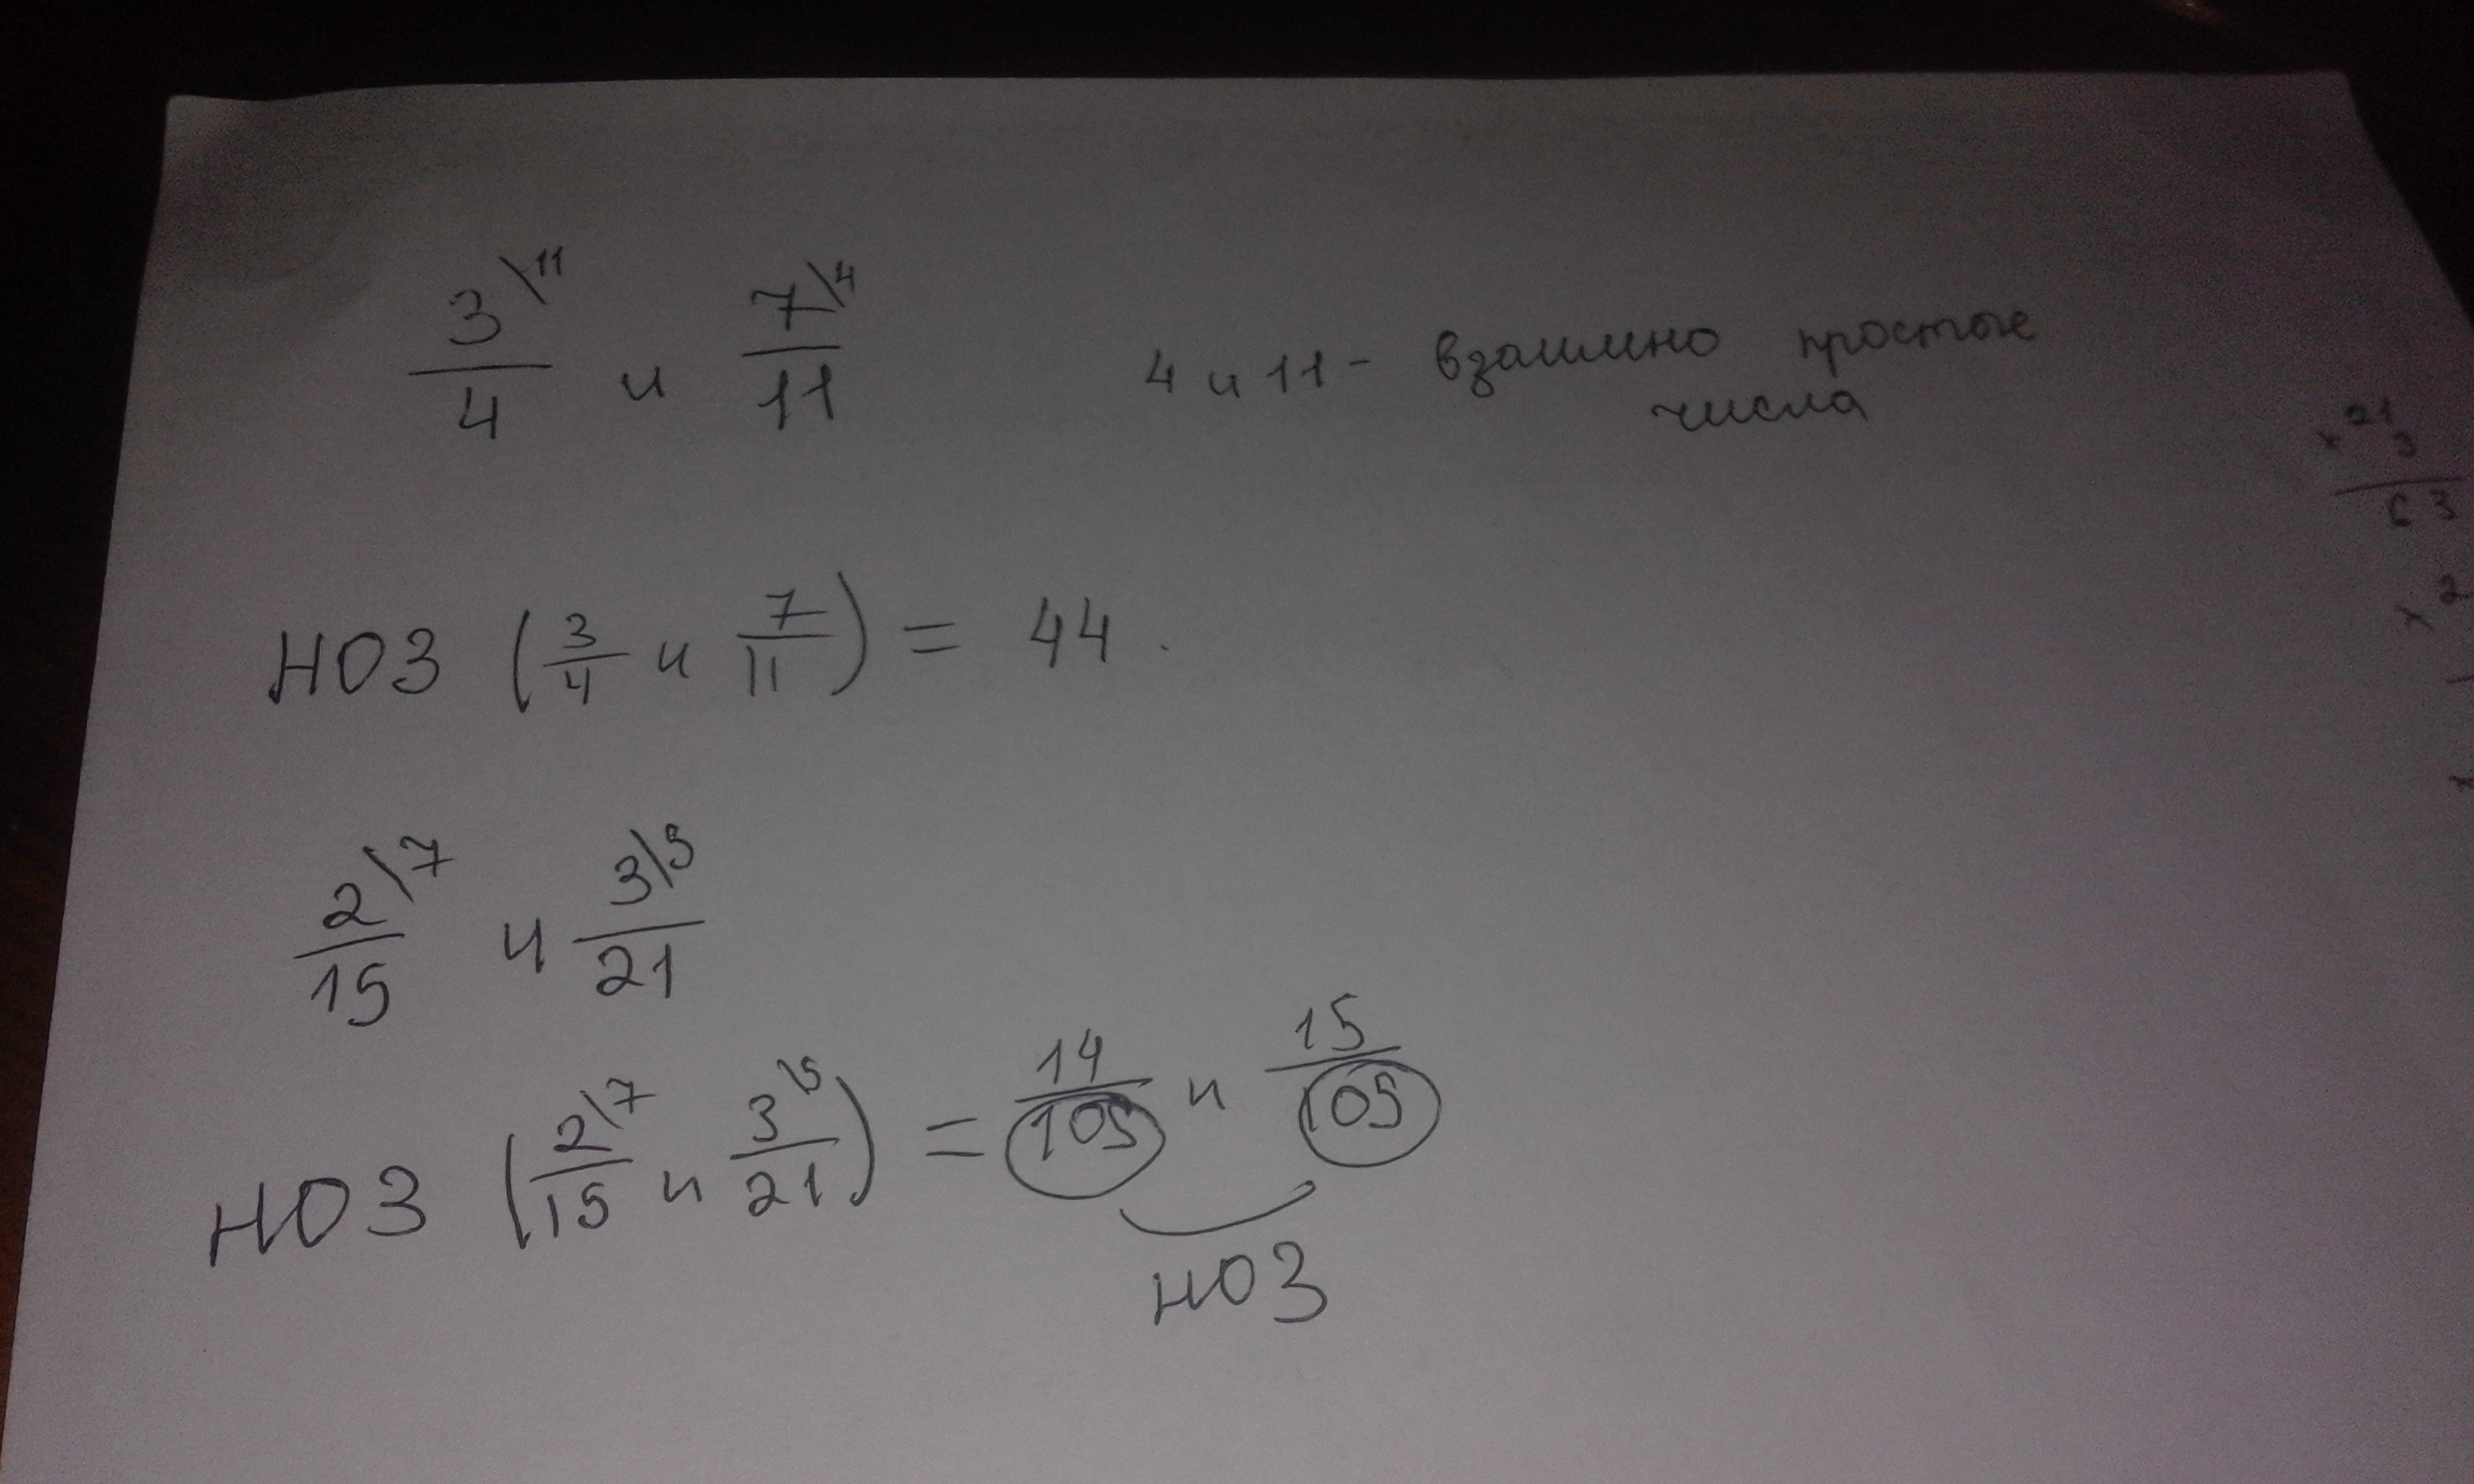 3\11 / 4 и 7\4 / 11 4 и 11 - взаимно простые
числа
НОЗ (3/4 и 7/11) = 44.
2\7 / 15 и 3\5 / 21
НОЗ (2\7 / 15 и 3\5 / 21) = 14/105 и 15/105
НОЗ
× 21
3
63
× 2
×